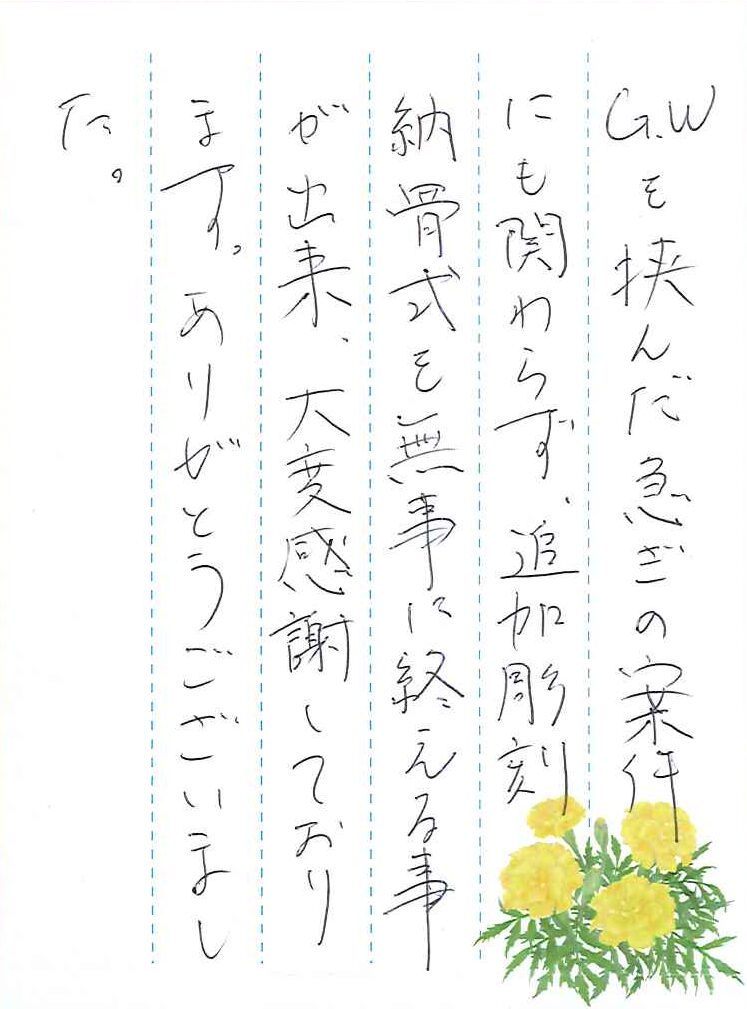 G.Wを挟んだ急ぎの案件
にも関わらず、追加彫刻
納骨式を無事に終える事
が出来、大変感謝しており
ます。ありがとうございまし
た。